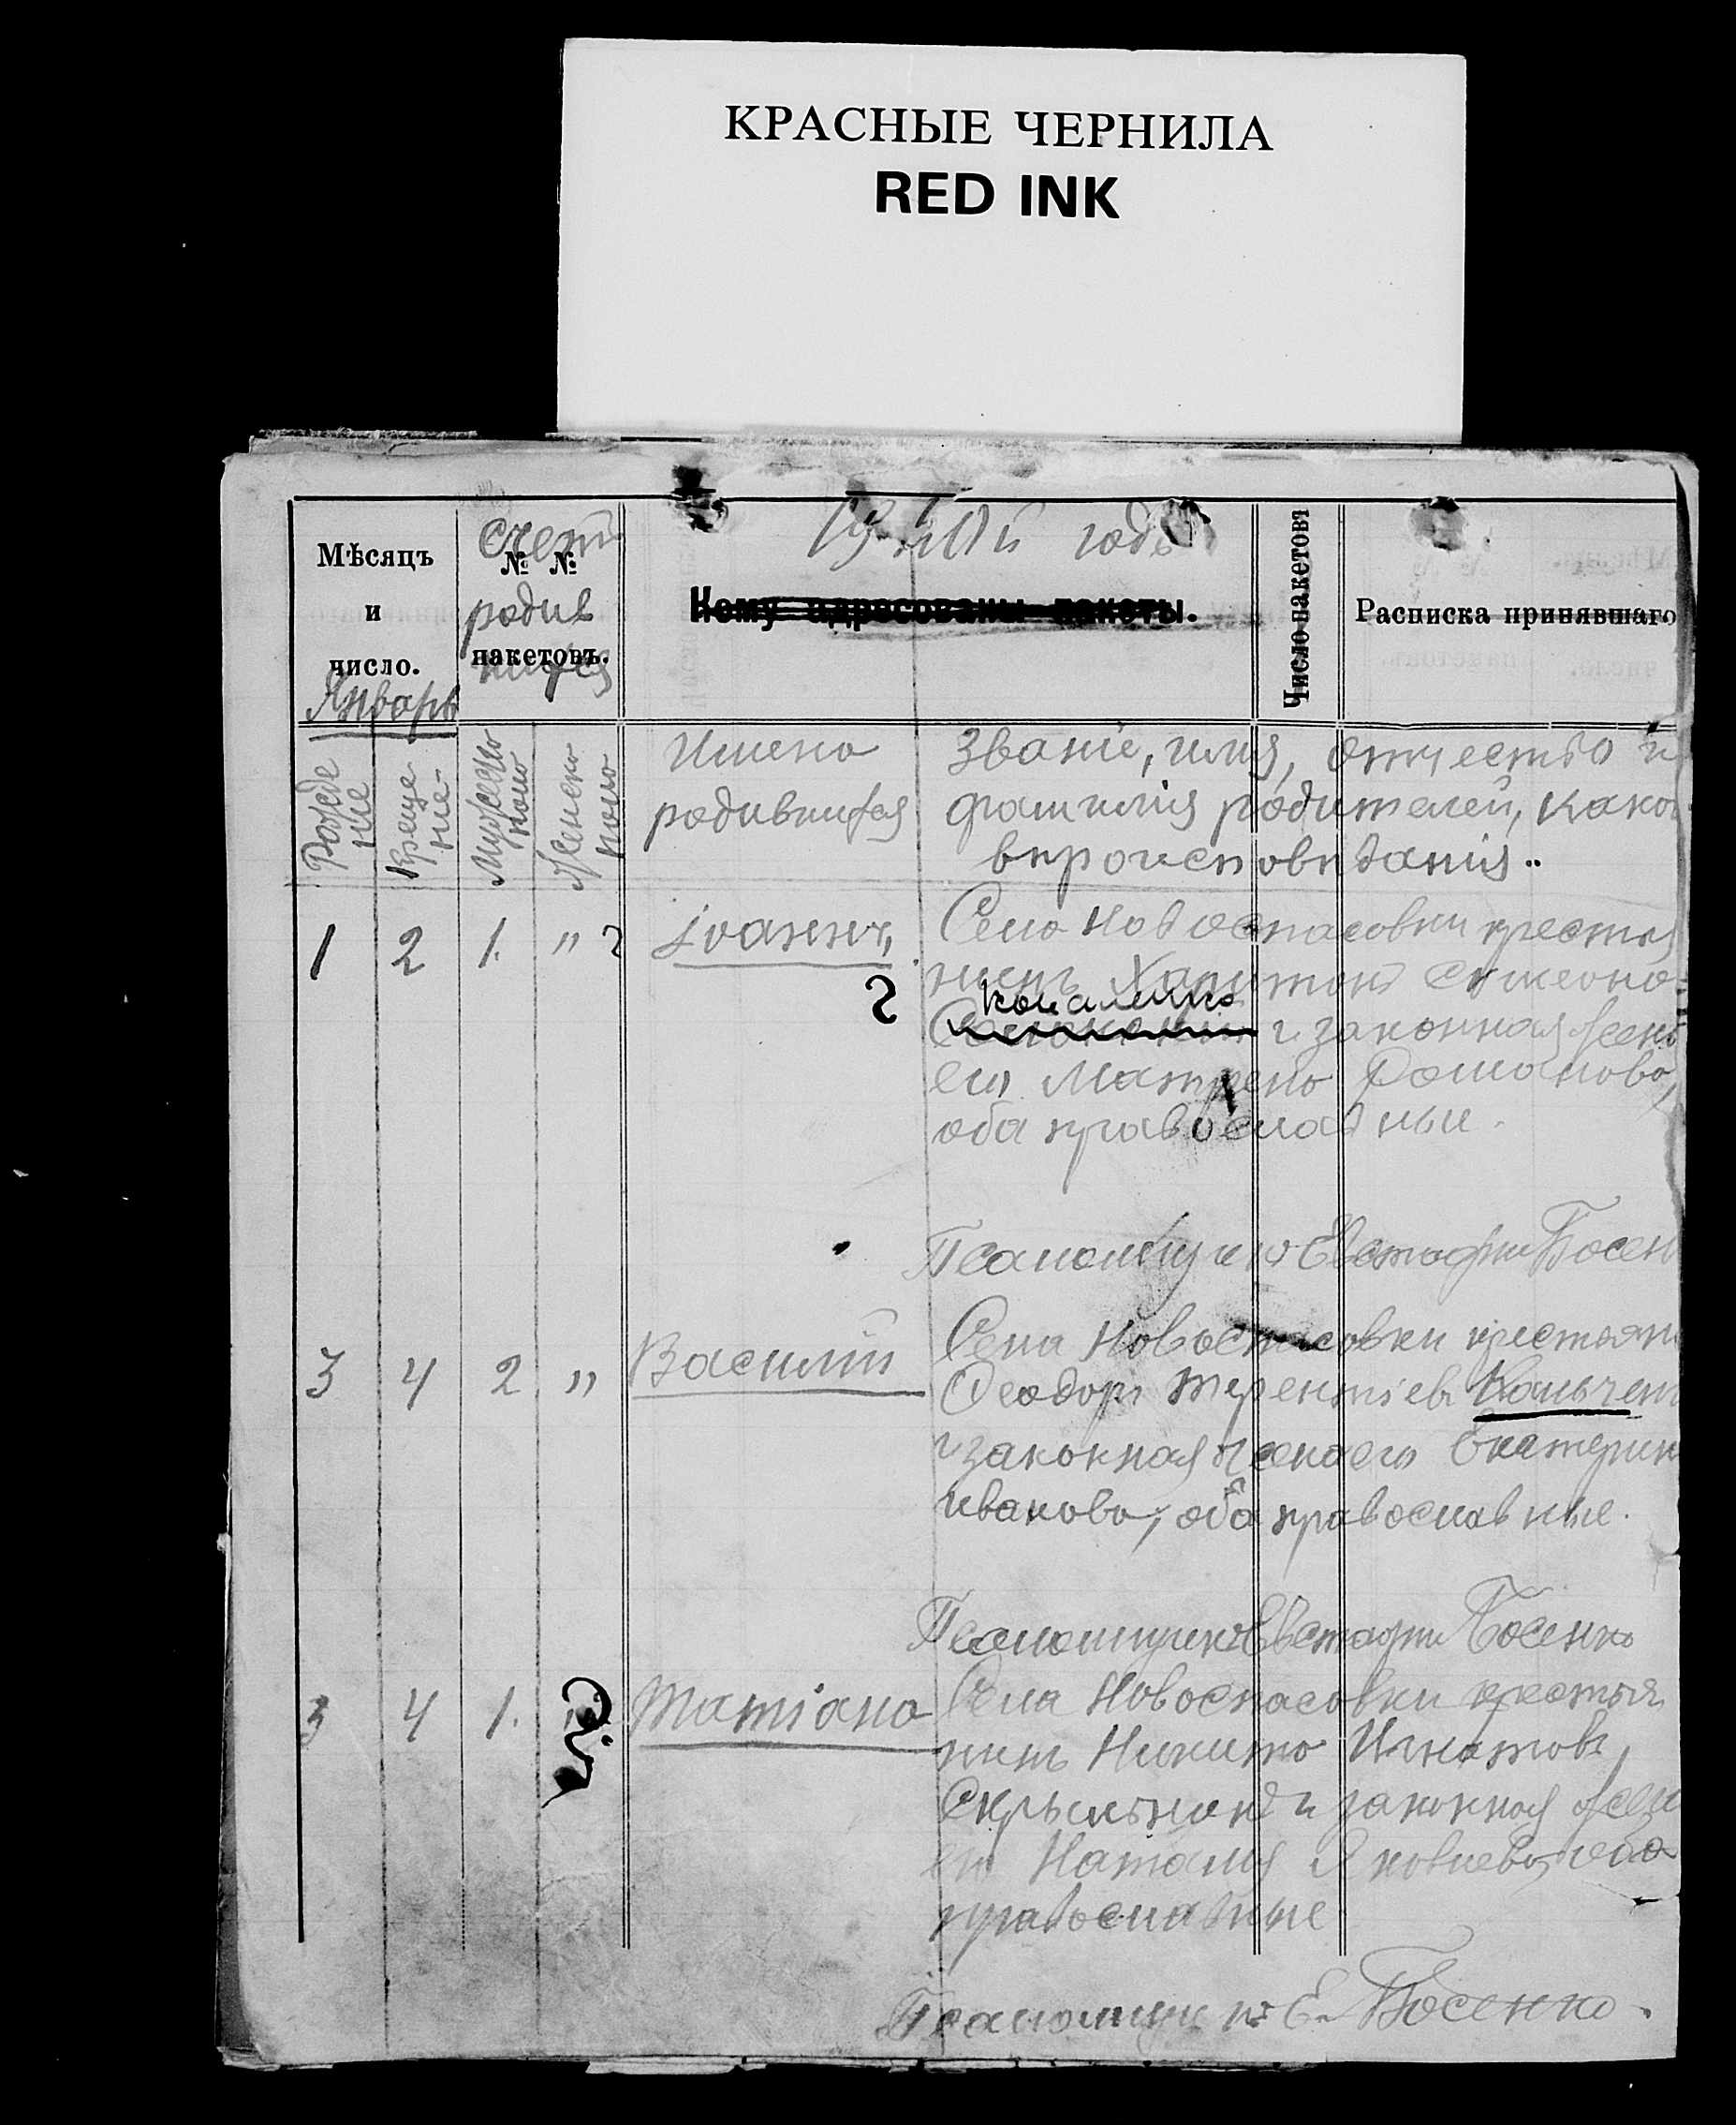 КРАСНЫЕ ЧЕРНИЛА
RED INK
Мѣсяцъ
и
число.
Январь
счетъ
№ №
родив
пакетовъ.
шихся
19 годъ
Кому адресованы пакеты.
Число пакетовъ
Расписка принявшаго
Рожде
ние
Креще
ние
Мужеско
Женско
Имена
родившихся
Званіе, имя, отчество и
фамилія родителей, како
вѣроисповѣданія..
1 2 1. "
Іоаннъ,
Села Новоспасовки крестья
нинъ Харитонъ Симеоно
Коваленко
и законная жена
его Матрена Романова,
оба православныи.
Псаломщикъ Евстафий Босен
3 4 2 "
Василій
Села Новоспасовки крестьяни
Феодоръ Терентіевъ
и законная жена его Екатерин
Иванова, оба православные.
Псаломщикъ Евстафий Босенко
3 4 1.
Татіана
Села Новоспасовки крестья
нинъ Никита Игнатовъ
и законная жен
его Наталія Яковлева, оба
православные
Псаломщикъ Е. Босенко.